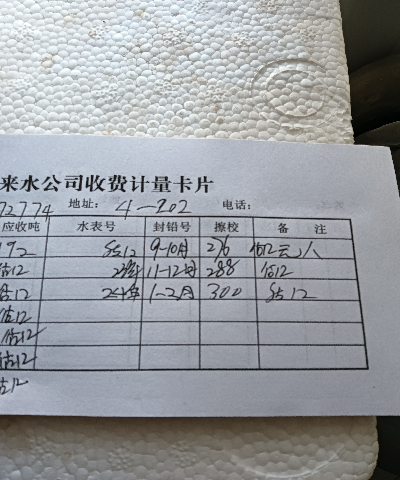 来水公司收费计量卡片
72774 地址: 4-202 电话:
应收吨 水表号 封铅号 擦校 备 注
192 估12 9-10月 276
估12 23年 11-12月 288 估12
估12 24年 1-2月 300 估12
估12
估12
估12
估12